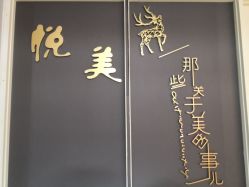 悦美
那些关于美的事儿